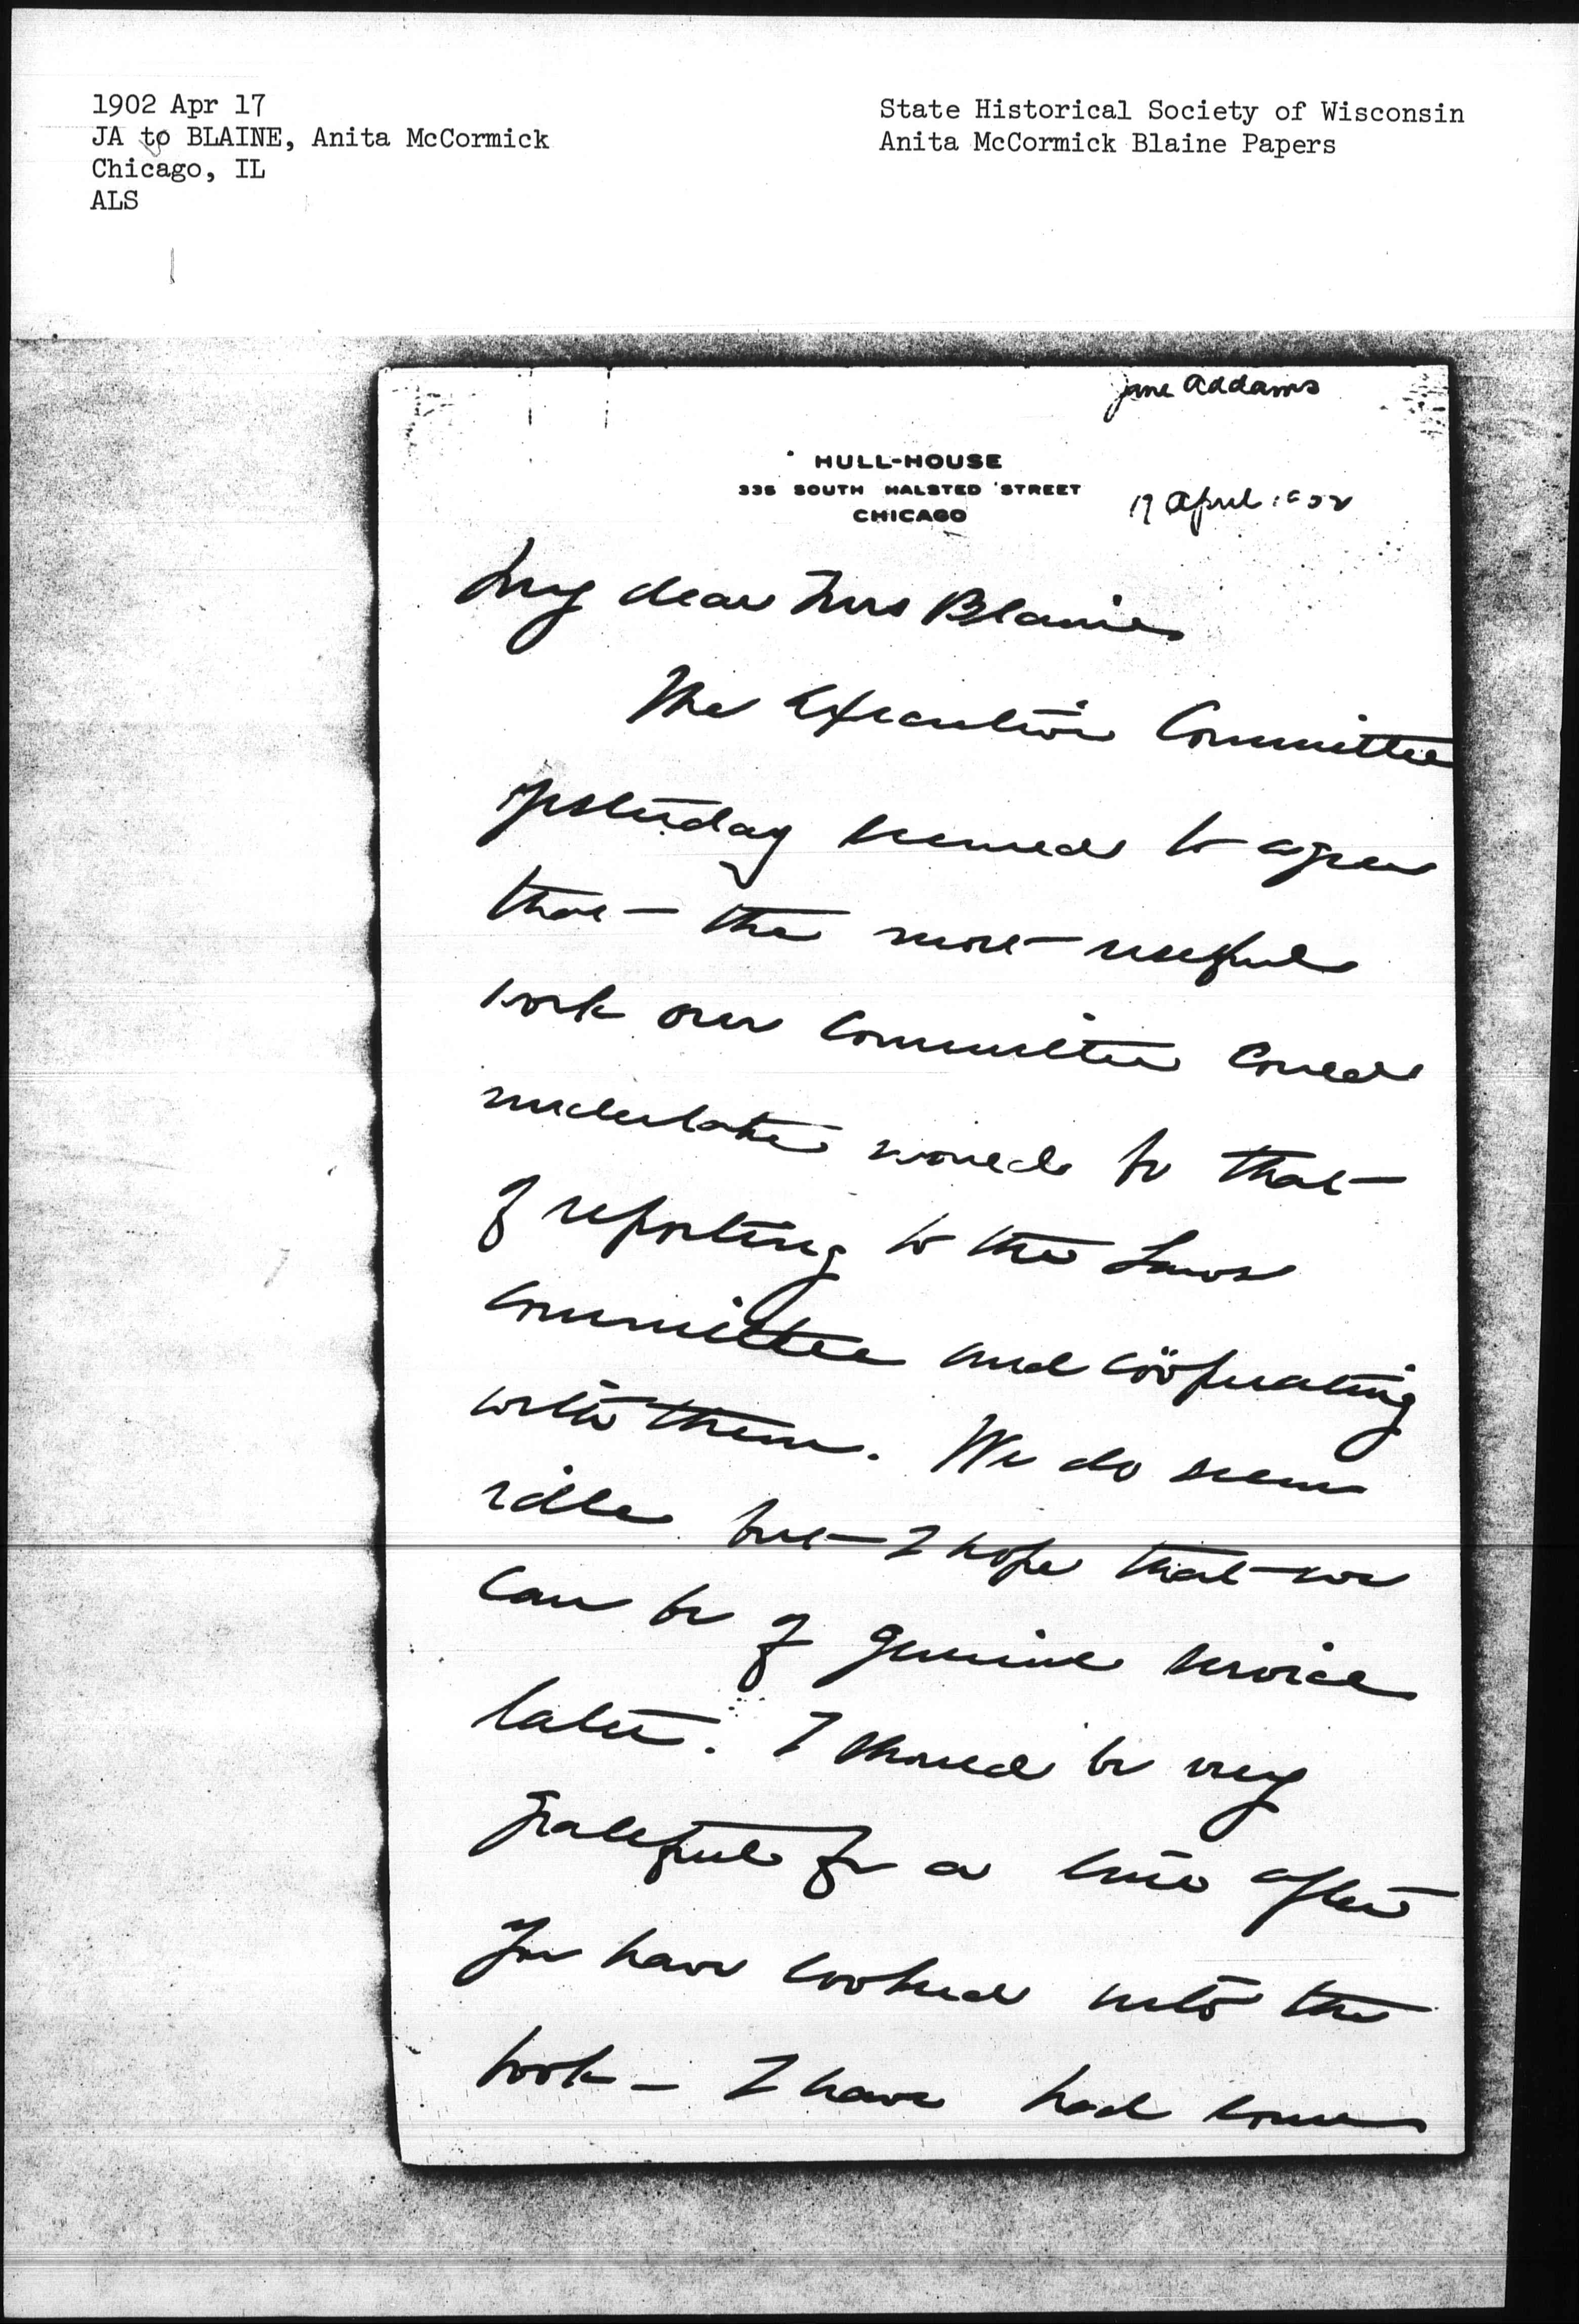 1902 Apr 17
JA to BLAINE, Anita McCormick
Chicago, IL
ALS
State Historical Society of Wisconsin
Anita McCormick Blaine Papers
Jane Addams
HULL-HOUSE
335 SOUTH HALSTED STREET
CHICAGO
17 April 1902
My dear Mrs Blaine
The Executive Committee
yesterday seemed to agree
that the most useful
work our committee could
undertake would be that
of reporting to the Laws
committee and coöperating
with them. We do seem
idle but I hope that we
can be of genuine service
later. I should be very
grateful for a line after
you have looked into the
book — I have had some